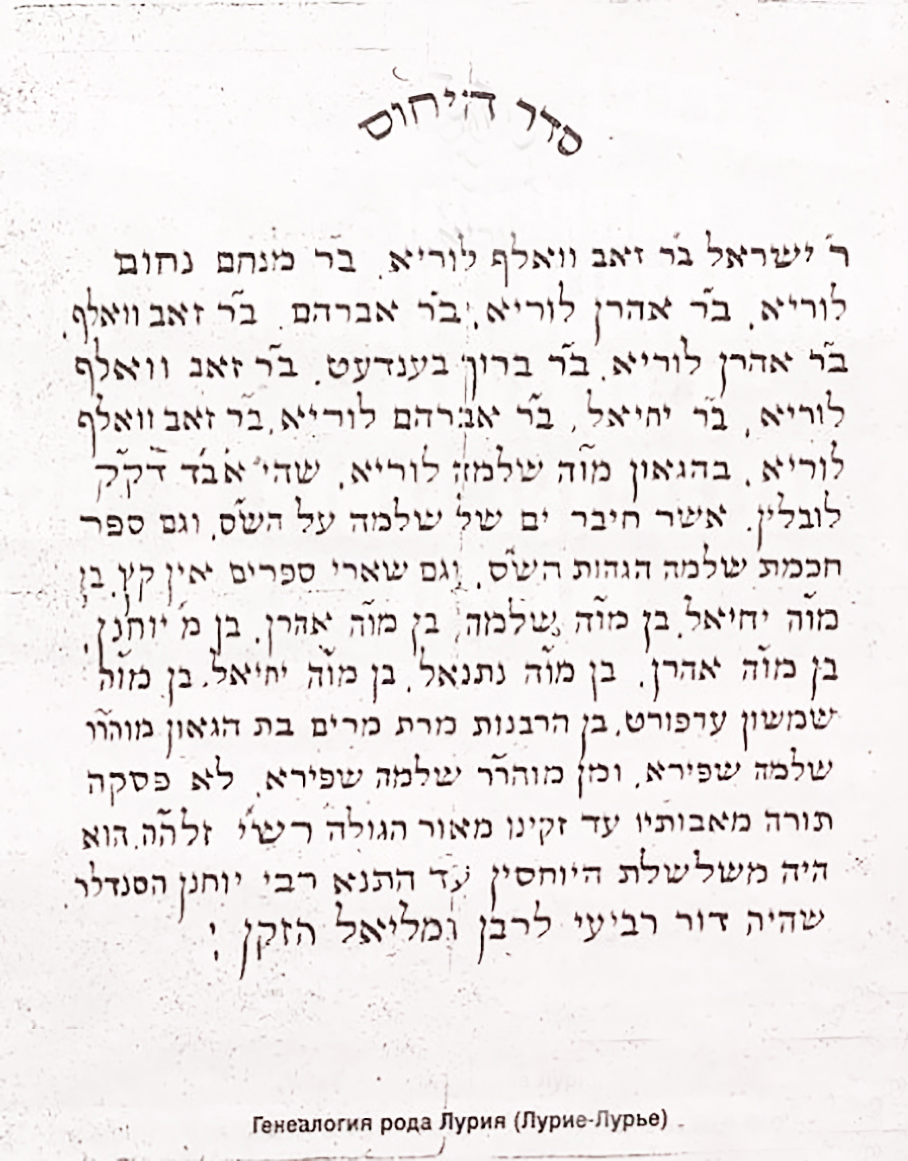 סדר היחוס
ר' ישראל בר זאב וואלף לוריא. בר מנחם נחום
לוריא. ב"ר אהרן לוריא. ב"ר אברהם. ב"ר זאב וואלף.
ב"ר אהרן לוריא. ב"ר ברוך בענדעט. ב"ר זאב וואלף
לוריא. ב"ר יחיאל. ב"ר אברהם לוריא. ב"ר זאב וואלף
לוריא. בהגאון מו"ה שלמה לוריא. שהי' אב"ד דק"ק
לובלין. אשר חיבר ים של שלמה על הש"ס. וגם ספר
חכמת שלמה הגהות הש"ס. וגם שארי ספרים אין קץ. בן
מו"ה יחיאל. בן מו"ה שלמה. בן מו"ה אהרן. בן מ' יוחנן.
בן מו"ה אהרן. בן מו"ה נתנאל. בן מו"ה יחיאל. בן מו"ה
שמשון ערפורט. בן הרבנות מרת מרים בת הגאון מוהר"ר
שלמה שפירא. ומן מוהר"ר שלמה שפירא. לא פסקה
תורה מאבותיו עד זקינו מאור הגולה רש"י זלה"ה. הוא
היה משלשלת היוחסין עד התנא רבי יוחנן הסנדלר.
שהיה דור רביעי לרבן גמליאל הזקן :
Генеалогия рода Лурия (Лурие-Лурье)